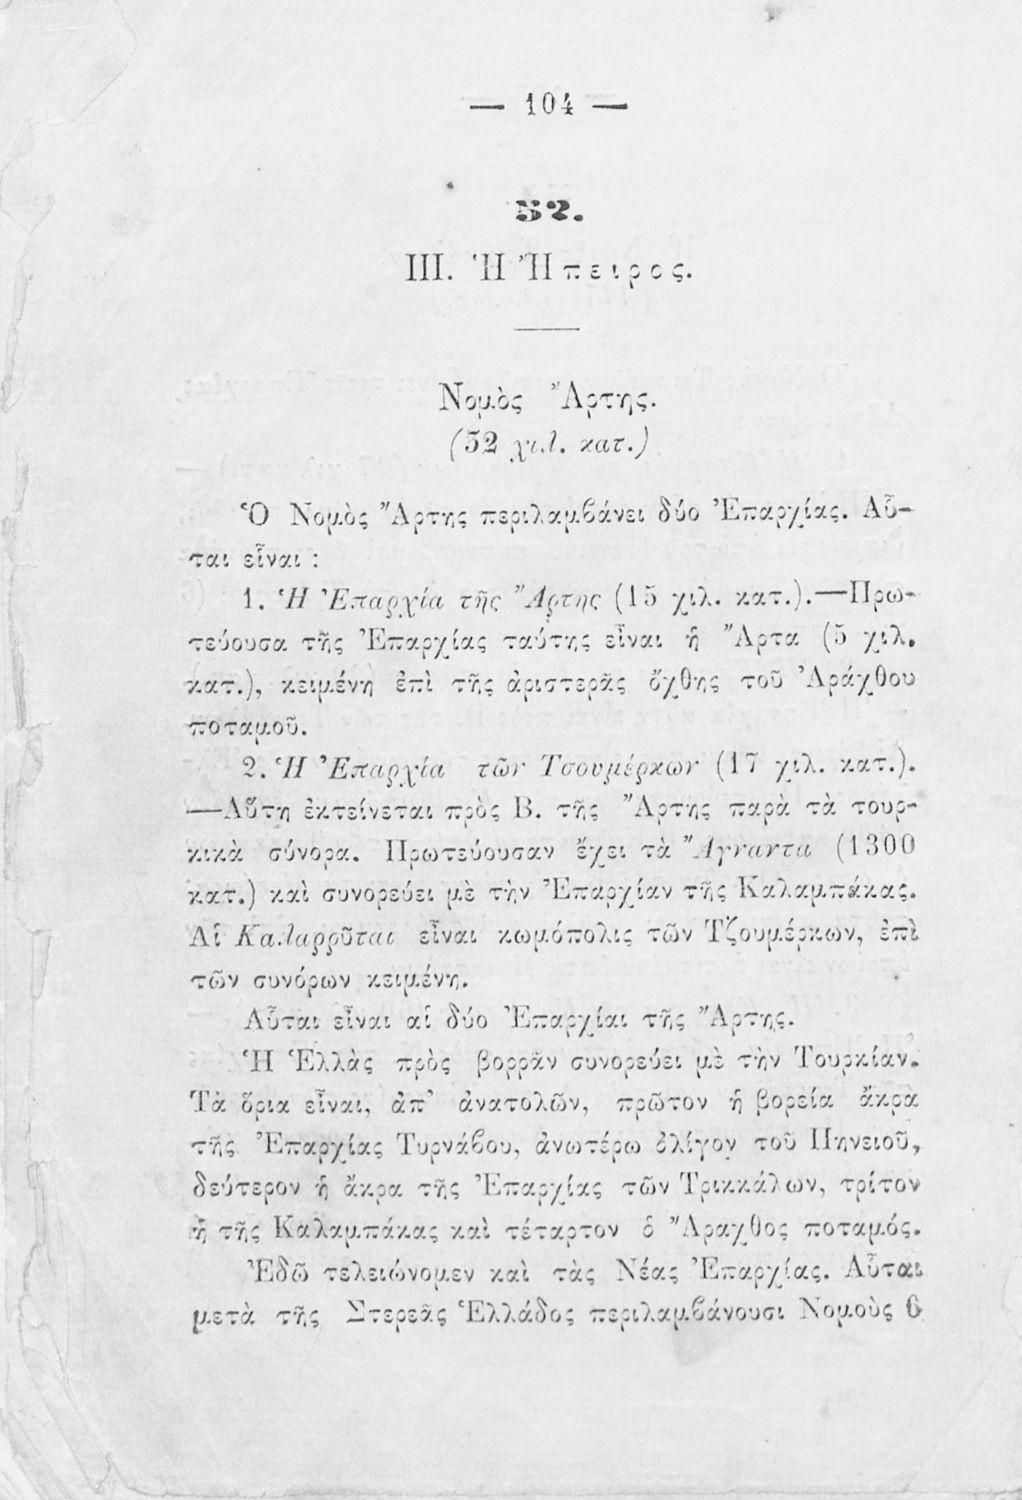 — 104 —
52.
III. Ἡ Ἤπειρος.
Νομὸς Ἄρτης.
(32 χιλ. κατ.)
Ὁ Νομὸς Ἄρτης περιλαμβάνει δύο Ἐπαρχίας. Αὗ-
ται εἶναι :
1. Ἡ Ἐπαρχία τῆς Ἄρτης (15 χιλ. κατ.).—Πρω-
τεύουσα τῆς Ἐπαρχίας ταύτης εἶναι ἡ Ἄρτα (5 χιλ.
κατ.), κειμένη ἐπὶ τῆς ἀριστερᾶς ὄχθης τοῦ Ἀράχθου
ποταμοῦ.
2. Ἡ Ἐπαρχία τῶν Τσουμέρκων (17 χιλ. κατ.).
—Αὕτη ἐκτείνεται πρὸς Β. τῆς Ἄρτης παρὰ τὰ τουρ-
κικὰ σύνορα. Πρωτεύουσαν ἔχει τὰ Ἄγναντα (1300
κατ.) καὶ συνορεύει μὲ τὴν Ἐπαρχίαν τῆς Καλαμπάκας.
Αἱ Καλαρρῦται εἶναι κωμόπολις τῶν Τζουμέρκων, ἐπὶ
τῶν συνόρων κειμένη.
Αὗται εἶναι αἱ δύο Ἐπαρχίαι τῆς Ἄρτης.
Ἡ Ἑλλὰς πρὸς βορρᾶν συνορεύει μὲ τὴν Τουρκίαν.
Τὰ ὅρια εἶναι, ἀπ' ἀνατολῶν, πρῶτον ἡ βορεία ἄκρα
τῆς Ἐπαρχίας Τυρνάβου, ἀνωτέρω ὀλίγον τοῦ Πηνειοῦ,
δεύτερον ἡ ἄκρα τῆς Ἐπαρχίας τῶν Τρικκάλων, τρίτον
ἡ τῆς Καλαμπάκας καὶ τέταρτον ὁ Ἄραχθος ποταμός.
Ἐδῶ τελειώνομεν καὶ τὰς Νέας Ἐπαρχίας. Αὗται
μετὰ τῆς Στερεᾶς Ἑλλάδος περιλαμβάνουσι Νομοὺς 6